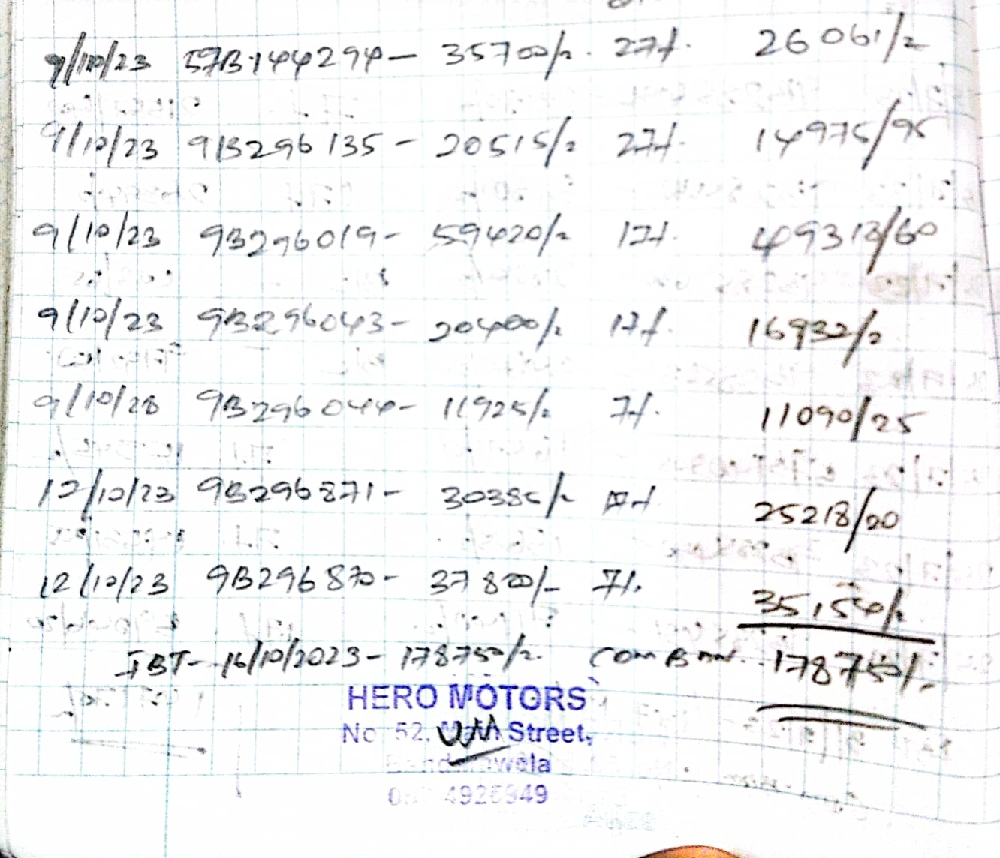 9/10/23 57B144294- 35700/- 27%. 26061/-
9/10/23 9B296135- 20515/- 27%. 14975/95
9/10/23 9B296019- 59420/- 17%. 49318/60
9/10/23 9B296043- 20400/- 17%. 16932/-
9/10/23 9B296044- 11925/- 7%. 11090/25
12/10/23 9B296871- 30385/- 25218/20
12/10/23 9B296870- 37800/- 7%. 35,154/-
IBT- 16/10/2023- 178750/- Com Bank. 178750/-
HERO MOTORS
No 52, Main Street,
Bandarawela
4926949